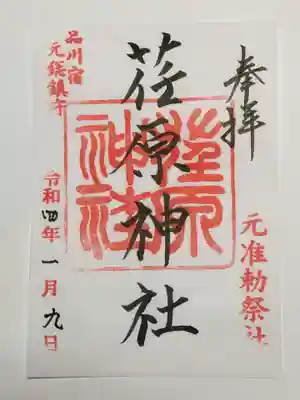 奉拝
元准勅祭社
荏原神社
荏原神社
品川宿
元鎮守
令和四年一月九日